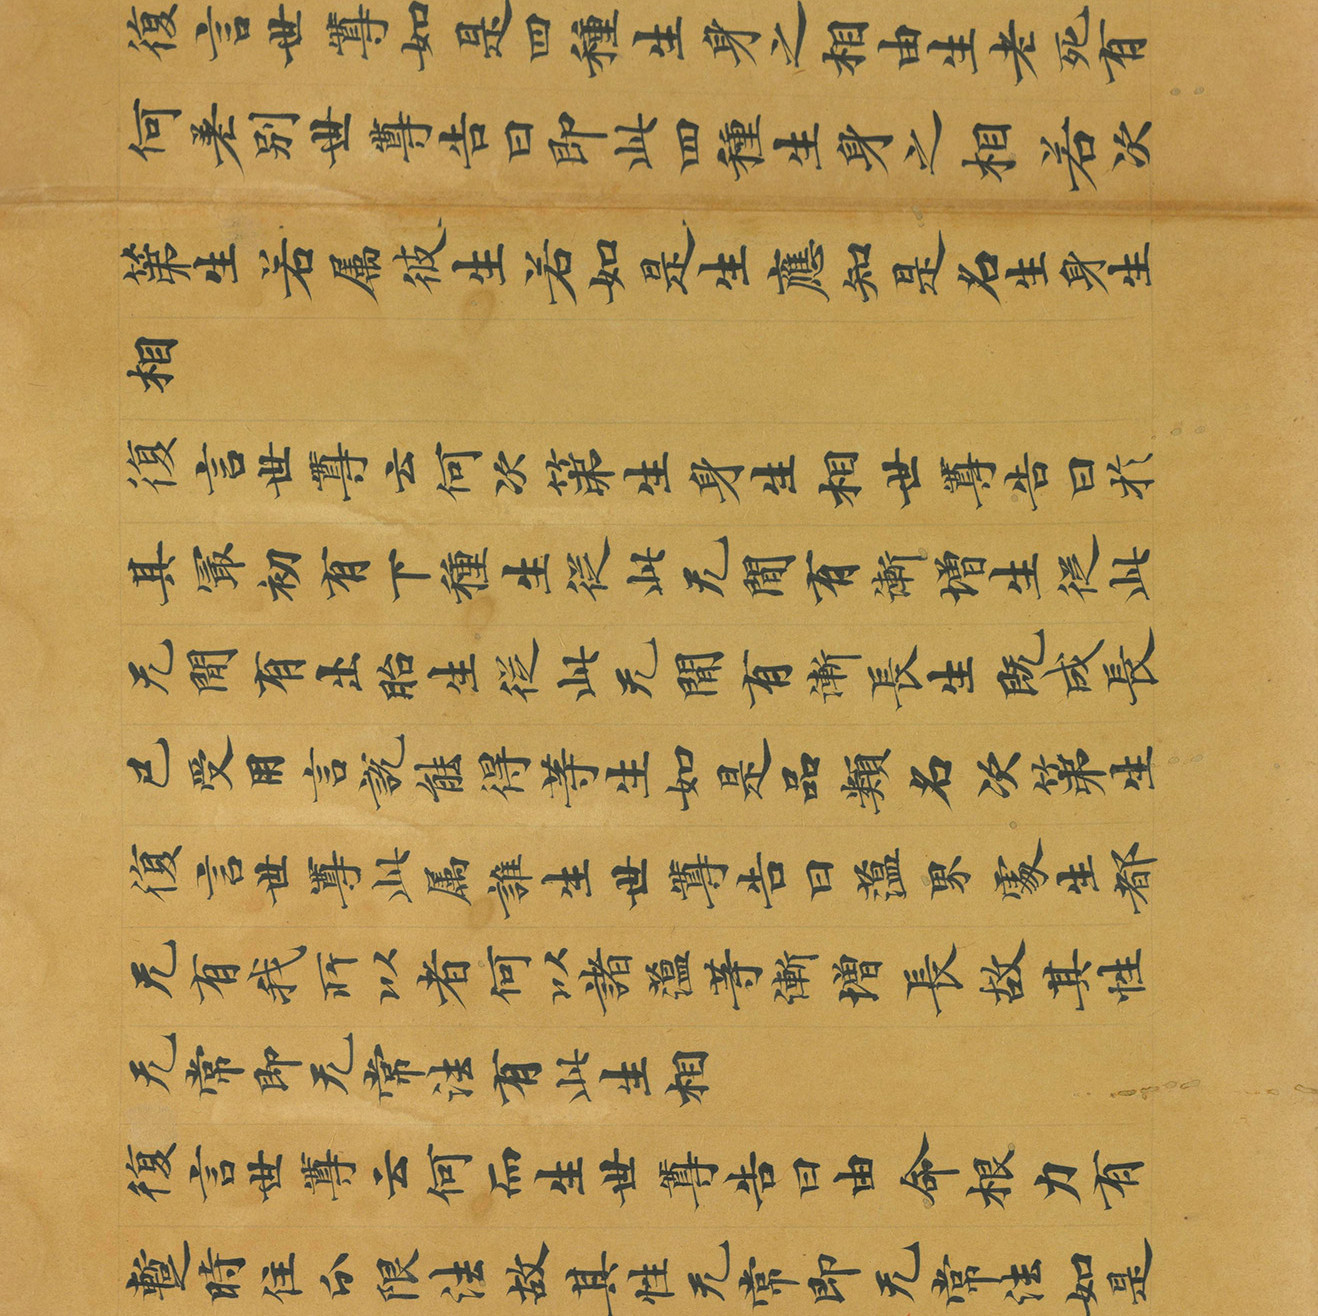 復言世尊如是四種生身之相由生老死有
何差別世尊告曰即此四種生身之相若次
第生若属彼生若如是生應知是名生身生
相
復言世尊云何次第生身生相世尊告曰於
其寂初有下種生從此无間有漸增生從此
无間有出胎生從此无間有漸長生既成長
已受用言說能得等生如是品類名次第生
復言世尊此属誰生世尊告曰蕴界處生都
无有我所以者何以諸蕴等漸增長故其性
无常即无常法有此生相
復言世尊云何而生世尊告曰由命根力有
暫時住分限法故其性无常即无常法如是